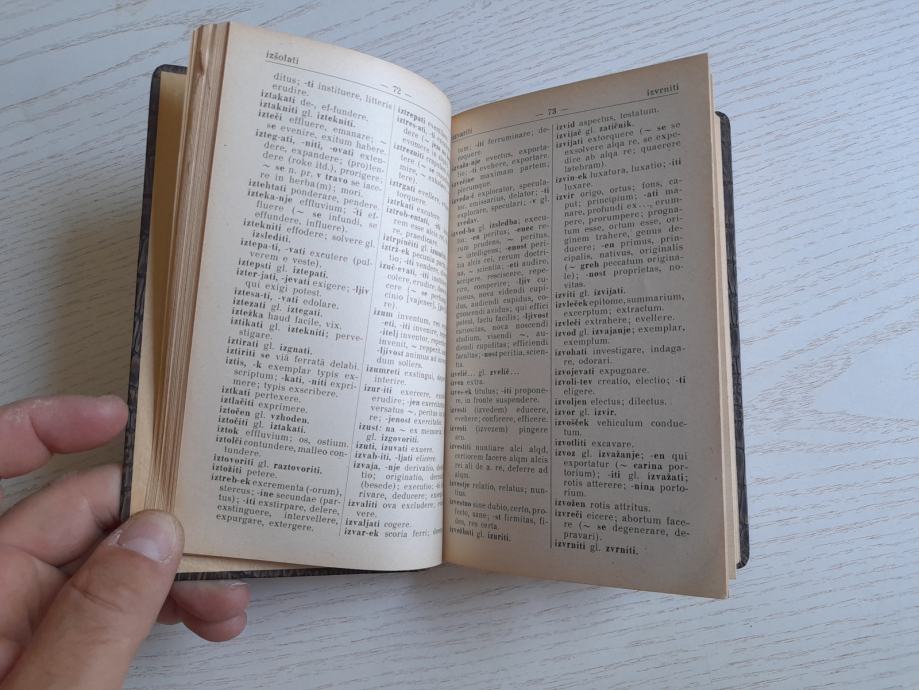 izšolati
— 72 —
ditus; -ti instituere, litteris
erudire.
iztakati de-, ef-fundere.
iztakniti gl. iztekniti.
izteči effluere, emanare; ~
se evenire, exitum habere.
izteg-ati, -niti, -ovati exten-
dere, expandere; (pro)ten-
dere (roke itd.), prorigere;
~ se n. pr. v travo se iace-
re in herba(m); mori.
iztehtati ponderare, pendere.
izteka-nje effluvium; -ti ef-
fluere (~ se infundi, se
effundere, influere).
iztekniti effodere; solvere gl.
izslediti.
iztepa-ti, -vati excutere (pul-
verem e veste).
iztepsti gl. iztepati.
izter-jati, -jevati exigere; -ljiv
qui exigi potest.
iztesa-ti, -vati edolare.
iztezati gl. iztegati.
iztežka haud facile, vix.
iztikati gl. iztekniti; perve-
stigare.
iztirati gl. izgnati.
iztiriti se viā ferratā delabi.
iztis, -k exemplar typis ex-
scriptum; -kati, -niti expri-
mere; typis exscribere.
iztkati pertexere.
iztlačiti exprimere.
iztočen gl. vzhoden.
iztočiti gl. iztakati.
iztok effluvium; os, ostium.
iztolči contundere, malleo con-
tundere.
iztovoriti gl. raztovoriti.
iztožiti petere.
iztreb-ek excrementa (-orum),
stercus; -ine secundae (par-
tus); -iti exstirpare, delere,
exstinguere, intervellere,
expurgare, extergere.
iztrepati
iztres-ati,
dere
evomere
iztrezniti
tere (~
mire,
lere)
iztrgati
torquere.
iztrkati
iztrob-entati,
rem esse
re,
iztrpinčiti gl.
iztrž-ek pecunia
-iti vendere,
izuč-evati, -iti
colere, erudire,
re (~ se
cinio [vajenec],
re)
izum inventum, res
-eti, -iti invenire,
-itelj inventor,
invenit, ~ repperit,
-ljivost animus ad
dum sollers.
izumreti exstingui,
interire.
izur-iti exercere,
re; -jen
versatus ~, peritus
re; -jenost
izust: na ~ ex memoria
gl. izgovoriti.
izuti, izuvati exuere.
izvab-iti, -ljati elicere
izvaja, -nje derivatio,
tio; originatio,
(besede); executio; -ti
rivare, deducere;
izvaliti ova excludere,
vere.
izvaljati cogere.
izvar-ek scoria ferri;
— 73 —
izvrniti
tum; -iti ferruminare; de-
coquere.
evectus, exporta-
tio; -ti evehere, exportare.
maximam partem,
plerumque.
explorator, specula-
tor, emissarius, delator; -ti
explorare, speculari; -v gl.
zvedav.
izved-ba gl. izsledba; execu-
tio; -en peritus; -enec
rum prudens, ~ peritus,
~ intellegens; -enost peri-
tia alcis rei, rerum doctri-
na, ~ scientia; -eti audire,
accipere, resciscere, repe-
rire, comperire; -ljiv cu-
riosus, nova videndi cupi-
dus, audiendi cupidus, co-
gnoscendi avidus; qui effici
potest, factu facilis; -ljivost
curiositas, nova noscendi
studium, visendi ~, au-
diendi cupiditas; efficiendi
facultas; -nost peritia, scien-
tia.
izvelič… gl. zvelič…
izven extra.
titulus; -iti propone-
re, in fronte suspendere.
izvesti (izvedem) educere,
evehere; conficere, efficere.
izvesti (izvezem) pingere
acu.
izvestiti nuntiare alci alqd,
certiorem facere alqm alcis
rei ali de a. re, deferre ad
alqm.
izvestje relatio, relatus; nun-
tius.
izvestno sine dubio, certo, pro-
fecto, sane; -st firmitas, fi-
des, res certa.
gl. izuriti.
izvid aspectus, testatum.
izvijač gl. zatičnik.
izvijati extorquere (~ se se
exsolvere alqa re, se expe-
dire ab alqa re; quaerere
latebram).
izvin-ek luxatura, luxatio; -iti
luxare.
izvir origo, ortus; fons, ca-
put; principium; -ati ma-
nare, profundi ex…, erum-
pere, prorumpere; progna-
tum esse, ortum esse, ori-
ginem trahere, genus de-
ducere; -en primus, prin-
cipalis, nativus, originalis
(~ greh peccatum origina-
le); -nost proprietas, no-
vitas.
izviti gl. izvijati.
izvleček epitome, summarium,
excerptum; extractum.
izvleči extrahere; evellere.
izvod gl. izvajanje; exemplar,
exemplum.
izvohati investigare, indaga-
re, odorari.
izvojevati expugnare.
izvoli-tev creatio, electio; -ti
eligere.
izvoljen electus; dilectus.
izvor gl. izvir.
izvošček vehiculum conduc-
tum.
izvotliti excavare.
izvoz gl. izvažanje; -en qui
exportatur (~ carina por-
torium); -iti gl. izvažati;
rotis atterere; -nina porto-
rium.
izvožen rotis attritus.
izvreči eicere; abortum face-
re (~ se degenerare, de-
pravari).
izvrniti gl. zvrniti.